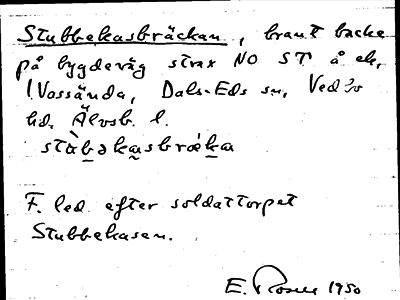 Stubbekasbräckan, brant backe
på bygdeväg strax NO ST å ek,
Vossända, Dals-Eds sn, Vedbo
hd, Älvsb. l.
F. led efter soldattorpet
Stubbekasen.
E. 1950